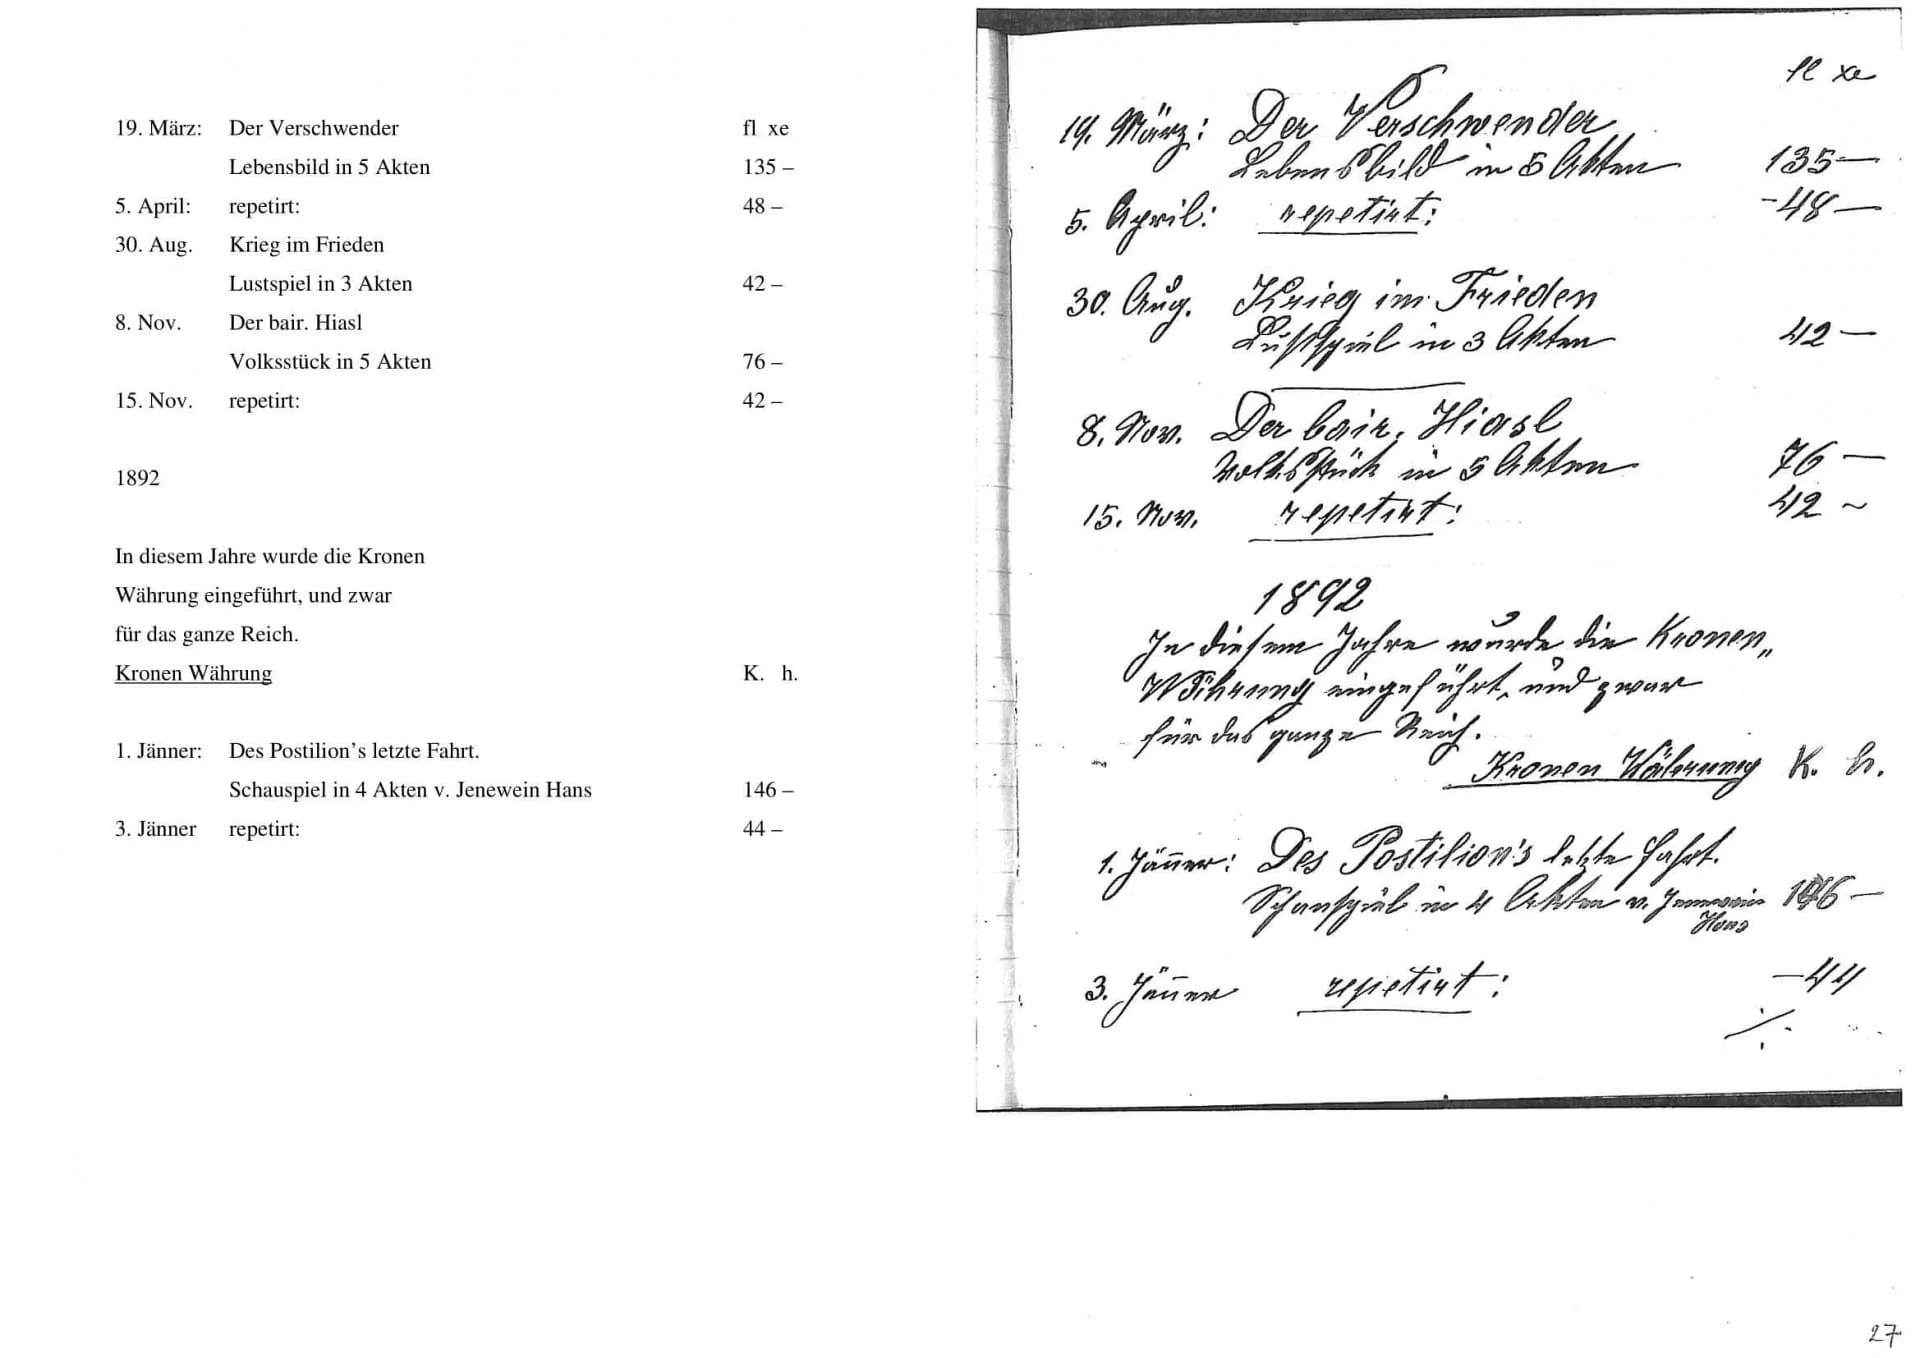 19. März: Der Verschwender fl xe
Lebensbild in 5 Akten 135 –
5. April: repetirt: 48 –
30. Aug. Krieg im Frieden
Lustspiel in 3 Akten 42 –
8. Nov. Der bair. Hiasl
Volksstück in 5 Akten 76 –
15. Nov. repetirt: 42 –
1892
In diesem Jahre wurde die Kronen
Währung eingeführt, und zwar
für das ganze Reich.
Kronen Währung K. h.
1. Jänner: Des Postilion’s letzte Fahrt.
Schauspiel in 4 Akten v. Jenewein Hans 146 –
3. Jänner repetirt: 44 –
fl xe
19. März: Der Verschwender
Lebensbild in 5 Akten 135 –
5. April: repetirt: - 48 –
30. Aug. Krieg im Frieden
Lustspiel in 3 Akten 42 –
8. Nov. Der bair. Hiasl
Volksstück in 5 Akten 76 –
15. Nov. repetirt: 42 ~
1892
In diesem Jahre wurde die Kronen„
Währung eingeführt, und zwar
für das ganze Reich.
Kronen Währung K. h.
1. Jänner: Des Postilion's letzte Fahrt.
Schauspiel in 4 Akten v. Jenewein 146 –
Hans
3. Jänner repetirt: – 44
./.
27